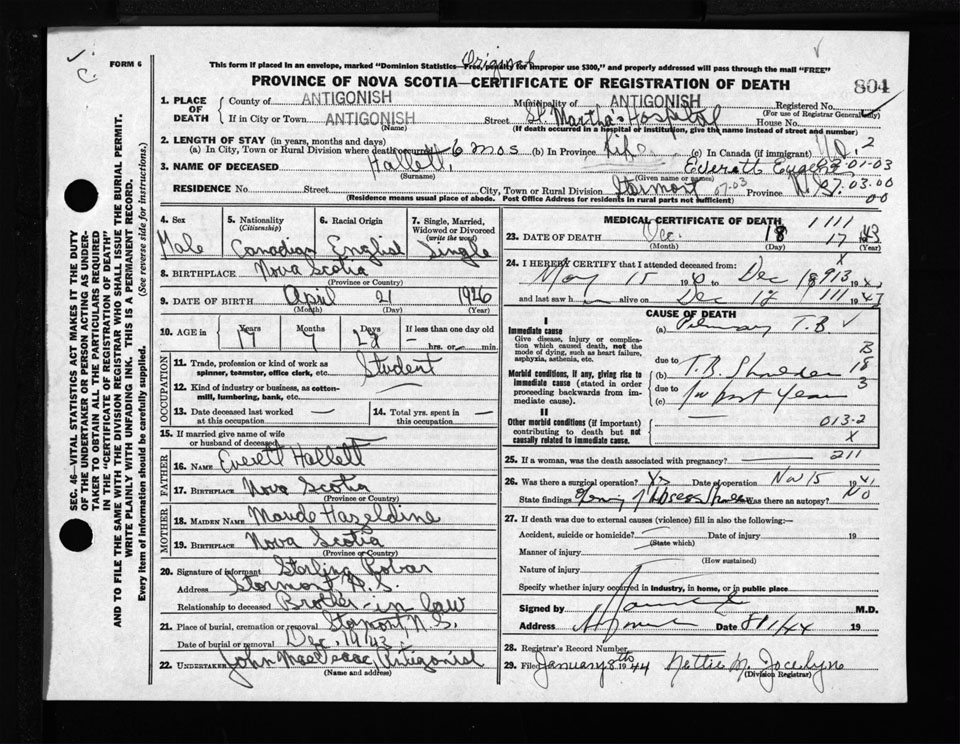 FORM 6
Original
This form if placed in an envelope, marked "Dominion Statistics—Free, penalty for improper use $300," and properly addressed will pass through the mail "FREE"
PROVINCE OF NOVA SCOTIA—CERTIFICATE OF REGISTRATION OF DEATH
804
1. PLACE OF DEATH County of ANTIGONISH Municipality of ANTIGONISH Registered No.
(For use of Registrar General only)
If in City or Town ANTIGONISH Street St Martha's Hospital House No.
(Name) (If death occurred in a hospital or institution, give the name instead of street and number)
2. LENGTH OF STAY (in years, months and days)
(a) In City, Town or Rural Division where death occurred 6 mos (b) In Province Life (c) In Canada (if immigrant)
3. NAME OF DECEASED Hallett, Everett Eugene
(Surname) (Given name or names)
RESIDENCE No Street City, Town or Rural Division Stormont 07-03 Province N.S. 07.03.00
(Residence means usual place of abode. Post Office Address for residents in rural parts not sufficient)
4. Sex Male
5. Nationality (Citizenship) Canadian
6. Racial Origin English
7. Single, Married, Widowed or Divorced (write the word) Single
8. BIRTHPLACE Nova Scotia
(Province or Country)
9. DATE OF BIRTH April 21 1926
(Month) (Day) (Year)
10. AGE in 17 Years 7 Months 28 Days If less than one day old hrs. or min.
OCCUPATION
11. Trade, profession or kind of work as spinner, teamster, office clerk, etc. Student
12. Kind of industry or business, as cotton-mill, lumbering, bank, etc. —
13. Date deceased last worked at this occupation —
14. Total yrs. spent in this occupation —
15. If married give name of wife or husband of deceased
FATHER
16. NAME Everett Hallett
17. BIRTHPLACE Nova Scotia
(Province or Country)
MOTHER
18. MAIDEN NAME Maude Hazeldine
19. BIRTHPLACE Nova Scotia
(Province or Country)
20. Signature of informant Starling Robar
Address Stormont N.S.
Relationship to deceased Brother-in law
21. Place of burial, cremation or removal Stormont N.S.
Date of burial or removal Dec. 19/43.
22. UNDERTAKER John MacIsaac Antigonish
(Name and address)
MEDICAL CERTIFICATE OF DEATH 1111
23. DATE OF DEATH Dec. 18 17 1943
(Month) (Day) (Year)
24. I HEREBY CERTIFY that I attended deceased from:
May 15 19 to Dec 18 19
and last saw h alive on Dec 17 1943
CAUSE OF DEATH
I
Immediate cause
Give disease, injury or complication which caused death, not the mode of dying, such as heart failure, asphyxia, asthenia, etc.
(a) Pulmonary T.B
due to
Morbid conditions, if any, giving rise to immediate cause (stated in order proceeding backwards from immediate cause).
(b) T.B. Shoulder
due to
(c) for past Year
B
18
3
II
Other morbid conditions (if important) contributing to death but not causally related to immediate cause.
013-2
X
25. If a woman, was the death associated with pregnancy? 211
26. Was there a surgical operation? Yes Date of operation Nov 15 1941
State findings Abscess Was there an autopsy? No
27. If death was due to external causes (violence) fill in also the following:—
Accident, suicide or homicide? Date of injury 19
(State which)
Manner of injury
(How sustained)
Nature of injury
Specify whether injury occurred in Industry, in home, or in public place
Signed by M.D.
Address Date 8/1/44 19
28. Registrar's Record Number
29. Filed January 8th 1944 Nettie M. Jocelyne
(Division Registrar)
SEC. 46—VITAL STATISTICS ACT MAKES IT THE DUTY
OF THE UNDERTAKER OR PERSON ACTING AS UNDER-
TAKER TO OBTAIN ALL THE PARTICULARS REQUIRED
IN THE "CERTIFICATE OF REGISTRATION OF DEATH"
AND TO FILE THE SAME WITH THE DIVISION REGISTRAR WHO SHALL ISSUE THE BURIAL PERMIT.
WRITE PLAINLY WITH UNFADING INK. THIS IS A PERMANENT RECORD.
Every item of information should be carefully supplied. (See reverse side for instructions.)